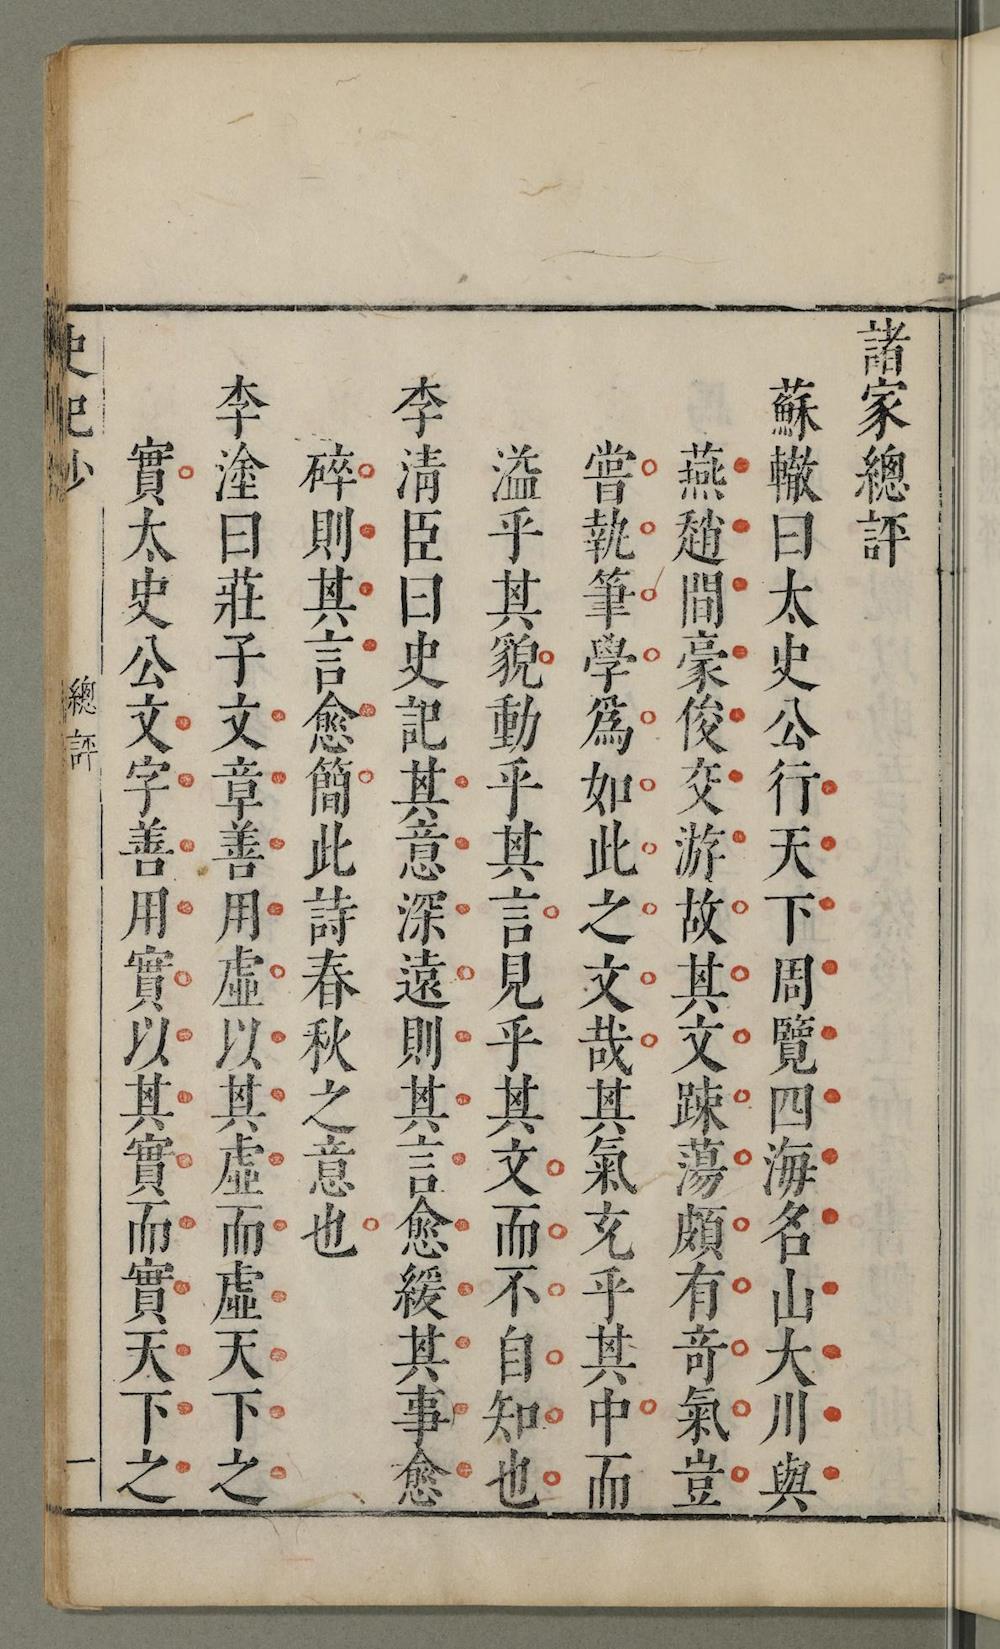 諸家總評
蘇轍曰太史公行天下周覽四海名山大川與
燕趙間豪俊交游故其文踈蕩頗有竒氣豈
嘗執筆學爲如此之文哉其氣充乎其中而
溢乎其貌動乎其言見乎其文而不自知也
李清臣曰史記其意深遠則其言愈緩其事愈
碎則其言愈簡此詩春秋之意也
李塗曰莊子文章善用虛以其虛而虛天下之
實太史公文字善用實以其實而實天下之
史記抄
總評
一